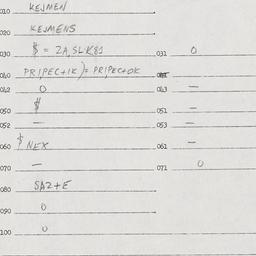 010 KEJMEN
020 KEJMENS
030 $ = ZA,SLUK81 031 0
040 PRIPEC+IK)= PRIPEC+OK
042 0 043 -
050 $ 051 -
052 - 053 -
060 $ NEX 061 -
070 - 071 0
080 SAZ+E
090 0
100 0